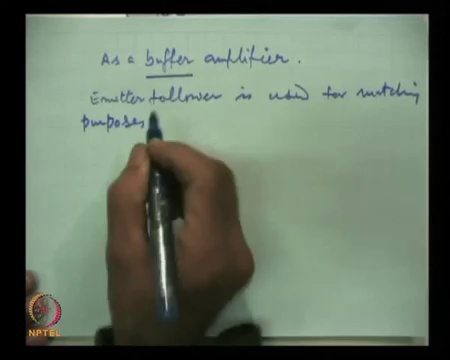 As a buffer amplifier.
Emitter follower is used for matching
purposes
NPTEL